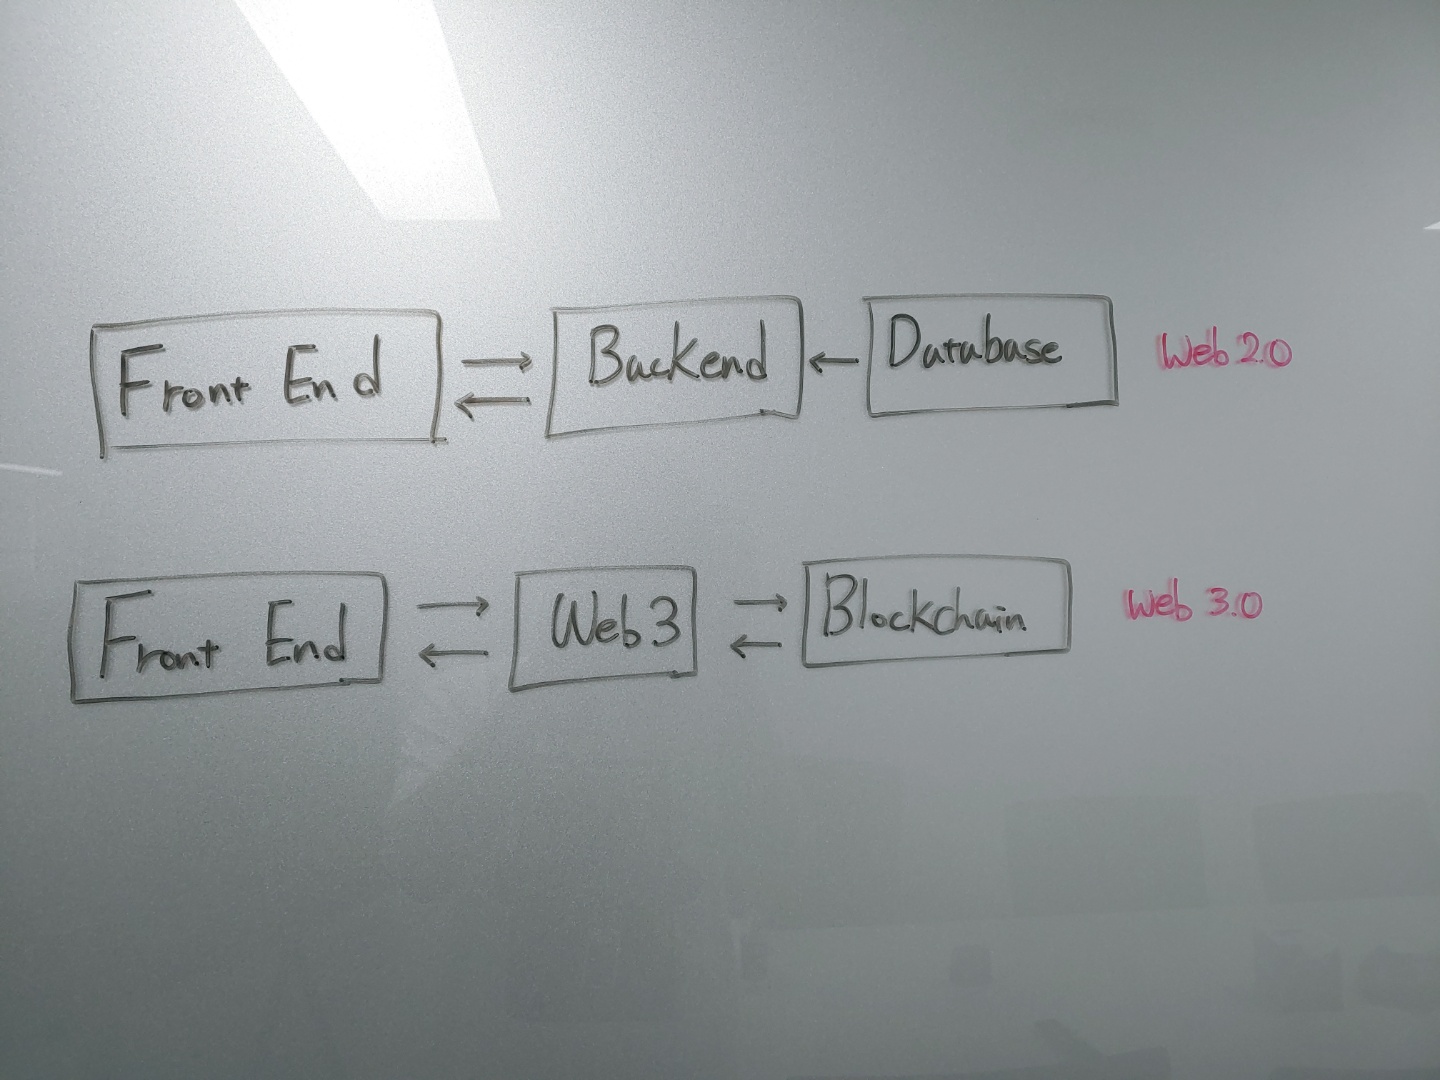 Front End Backend Database Web 2.0
Front End Web3 Blockchain Web 3.0